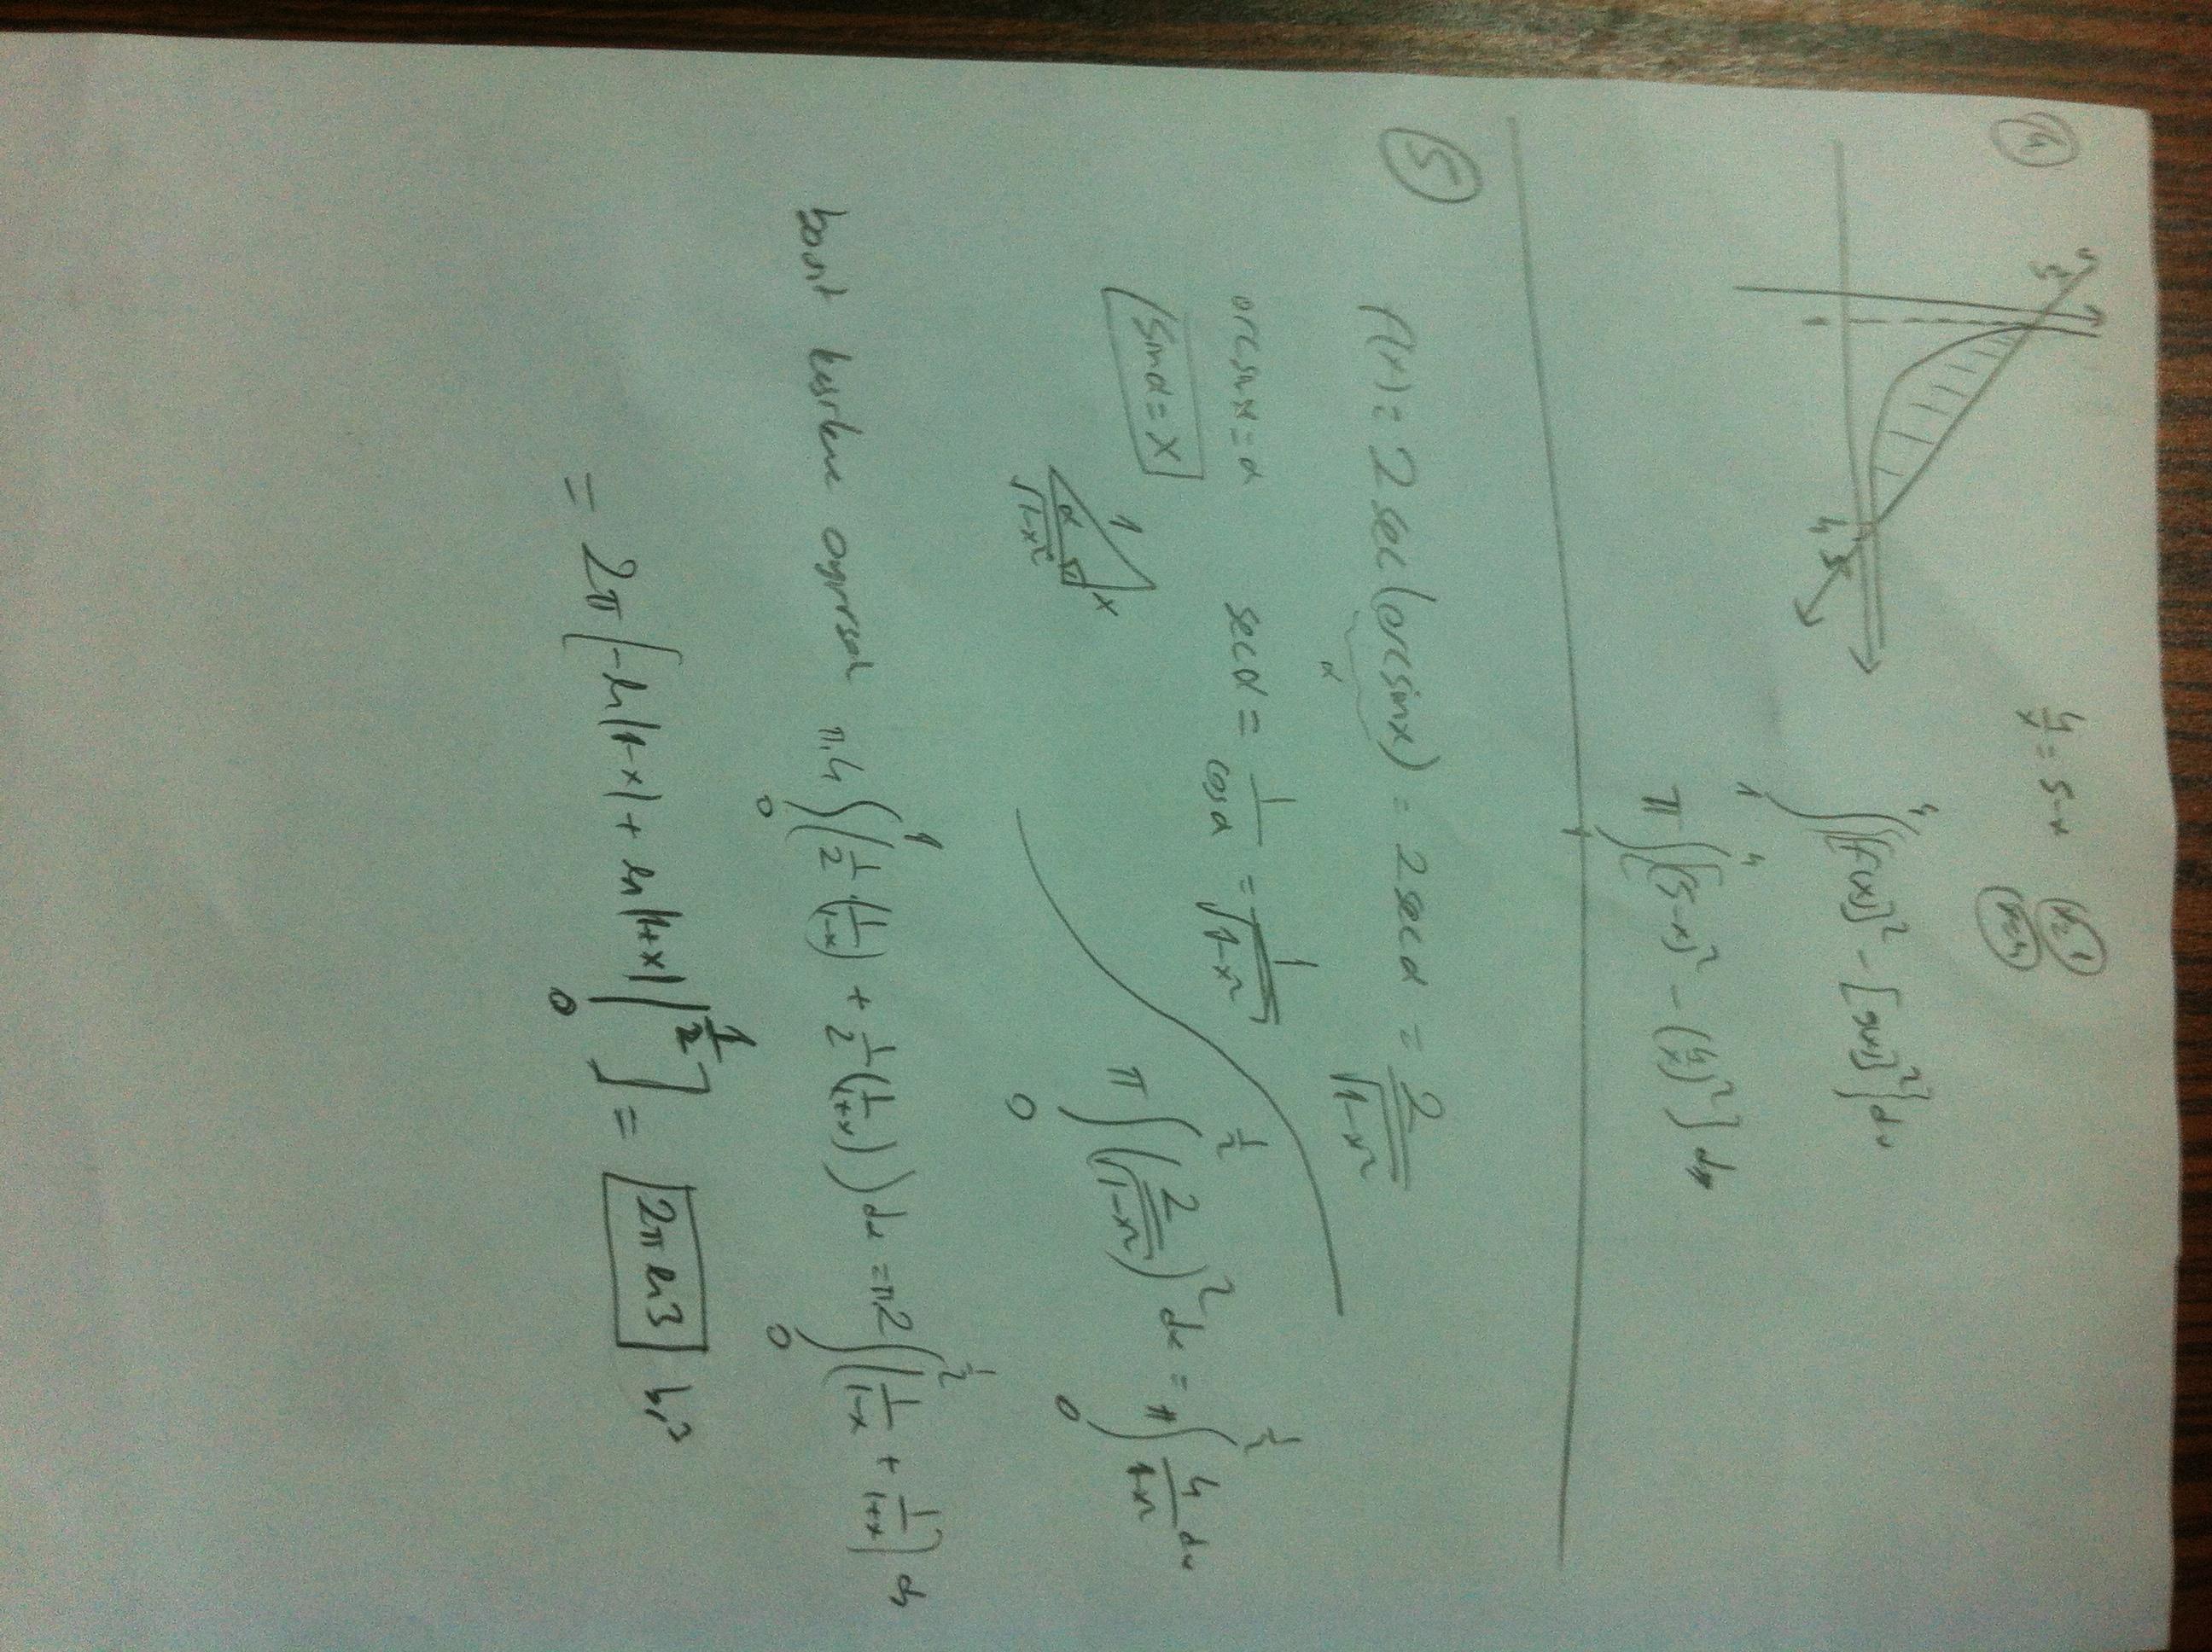 4
5
5
4
1
4/x = 5-x
x=1
x=4
∫₁⁴ {[f(x)]² - [g(x)]²} dx
π ∫₁⁴ [(5-x)² - (4/x)²] dx
5
f(x) = 2 sec(arcsinx) = 2 sec α = 2/√(1-x²)
α
arcsinx = α
secα = 1/cosα = 1/√(1-x²)
sinα = x
1
α
x
√(1-x²)
π ∫₀^(1/2) (2/√(1-x²))² dx = π ∫₀^(1/2) 4/(1-x²) dx
basit kesirlere ayırırsak π.4 ∫₀¹ (1/2 (1/(1-x)) + 1/2 (1/(1+x))) dx = π2 ∫₀^(1/2) (1/(1-x) + 1/(1+x)) dx
= 2π [-ln|1-x| + ln|1+x| |₀^(1/2)] = 2π ln3 br³